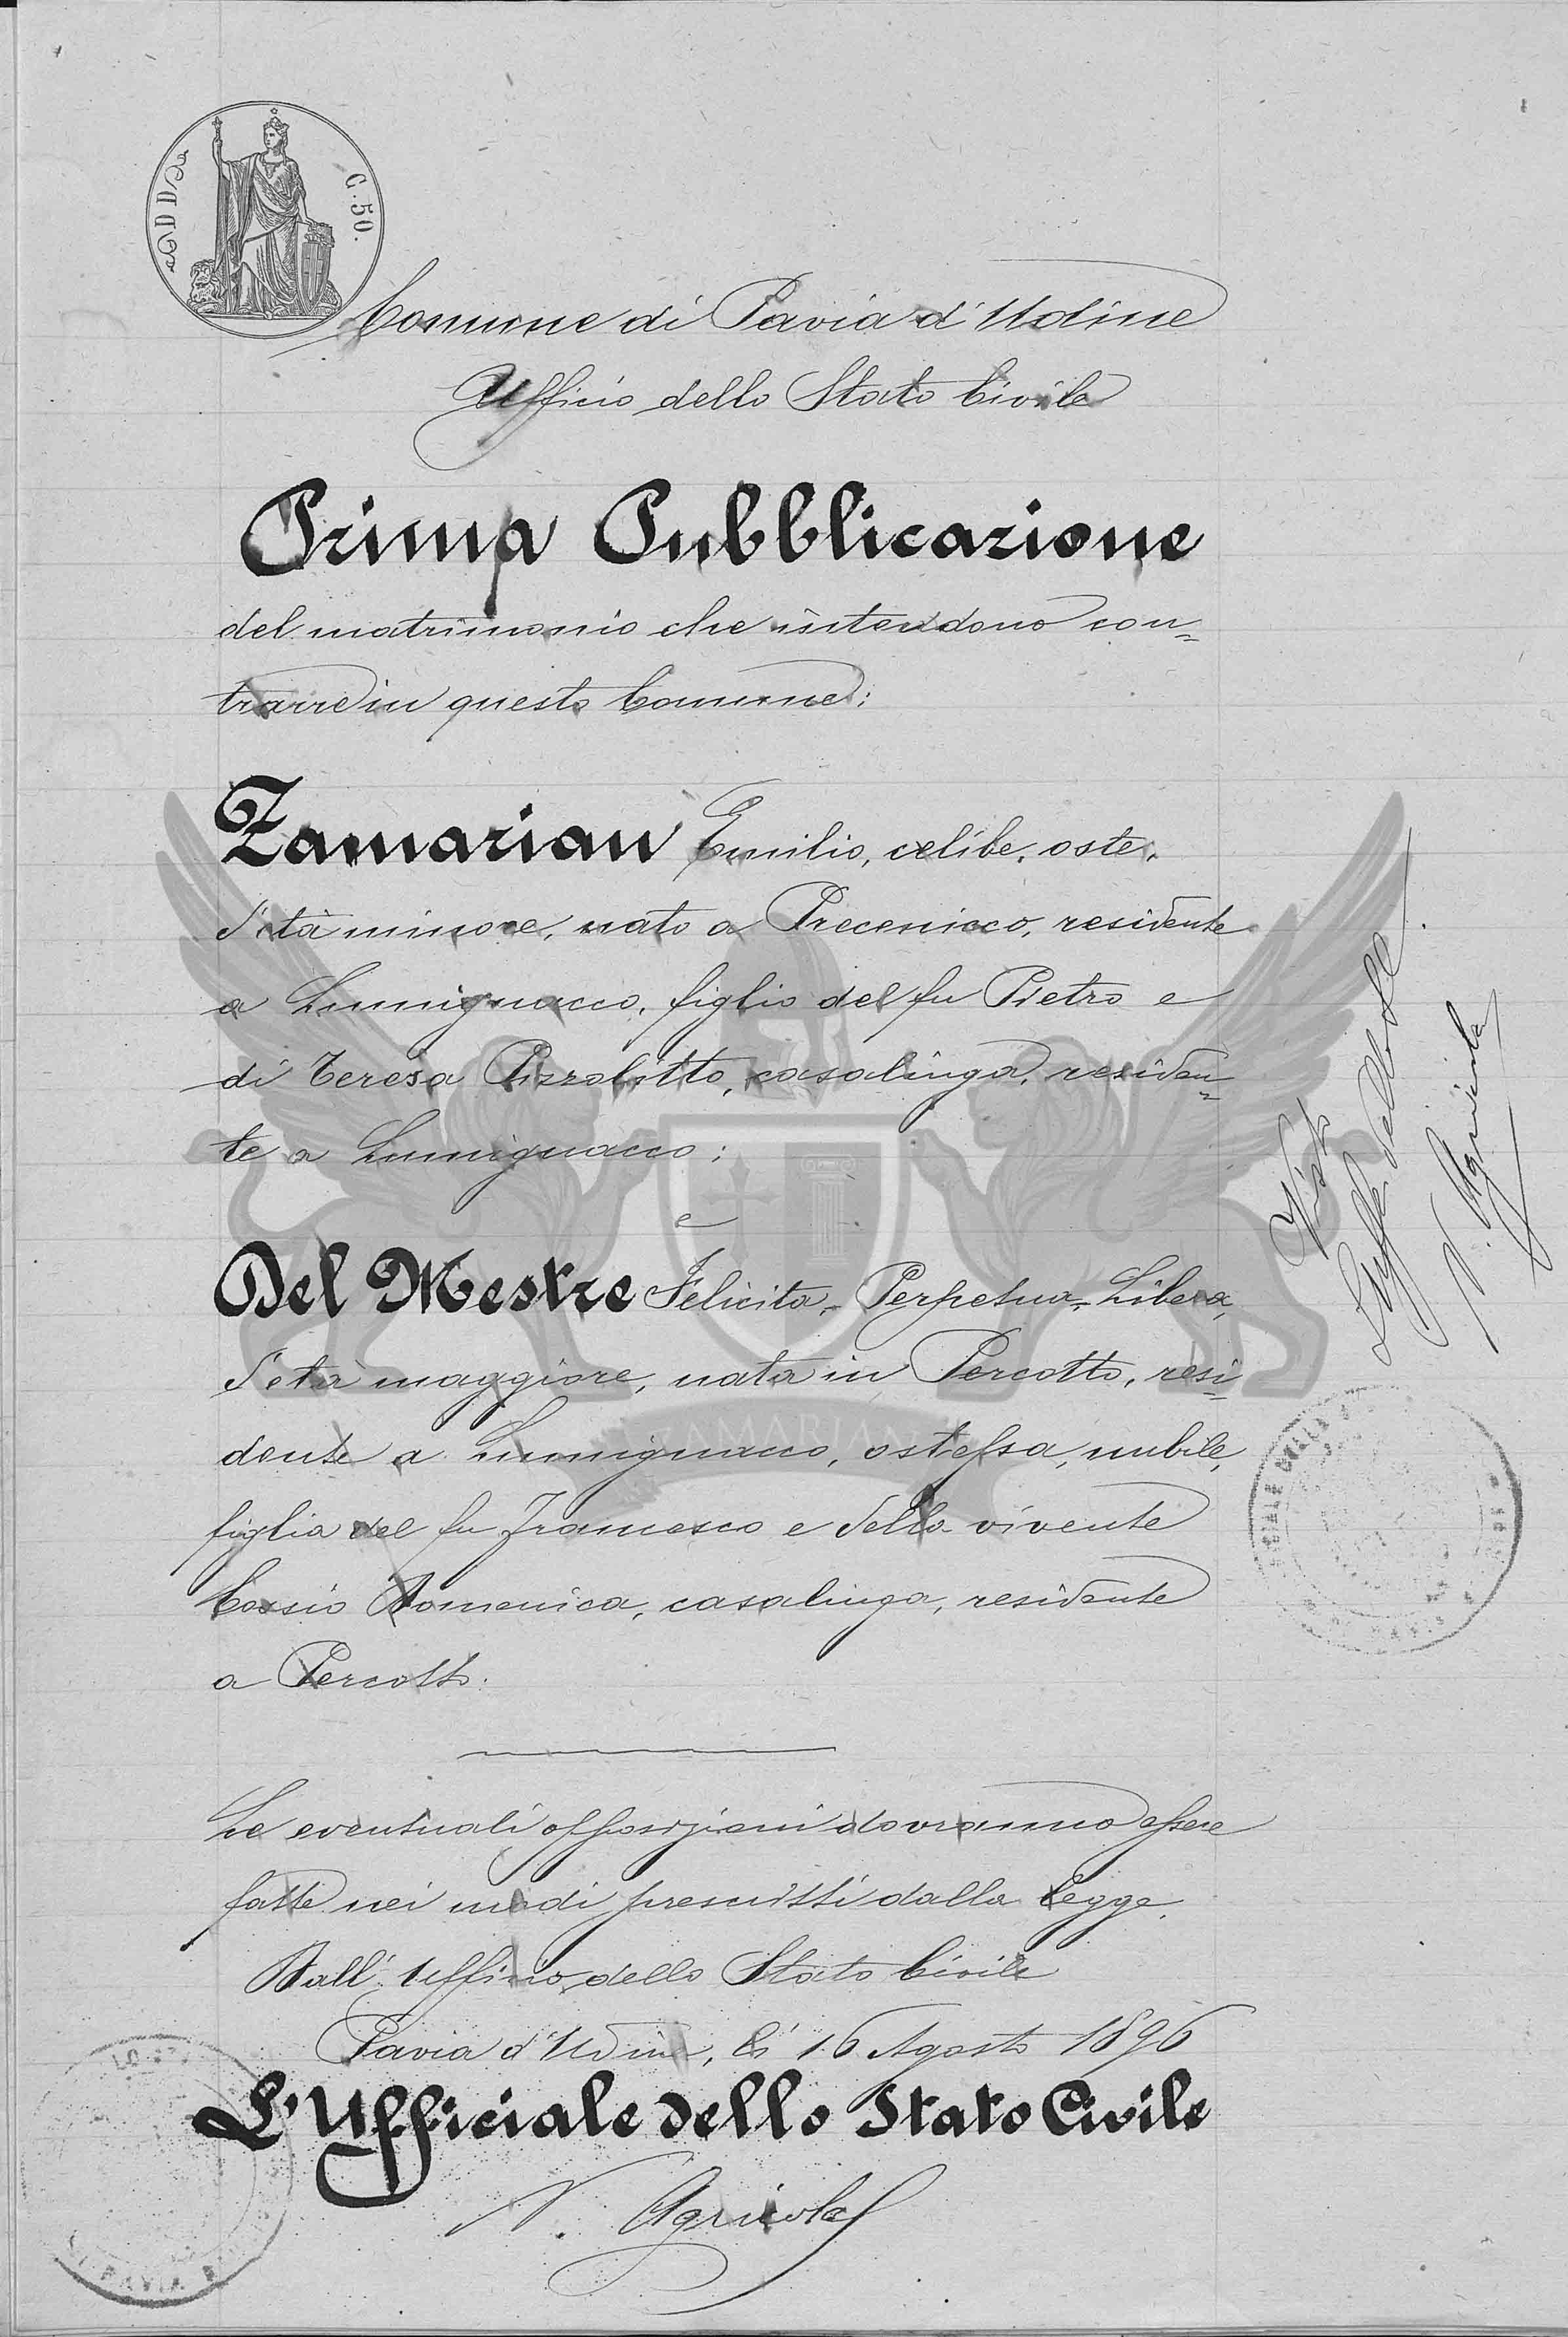 C. 50.
Comune di Pavia d'Udine
Ufficio dello Stato Civile
Prima Pubblicazione
del matrimonio che intendono con=
trarre in questo Comune:
Zamarian Emilio, celibe, oste,
d'età minore, nato a Precenicco, residente
a Lumignacco, figlio del fu Pietro e
di Teresa Pizzolitto, casalinga, residen=
te a Lumignacco;
e
Del Mestre Felicita, Perpetua, Libera,
d'età maggiore, nata in Percotto, resi=
dente a Lumignacco, ostessa, nubile,
figlia del fu Francesco e della vivente
Cossio Domenica, casalinga, residente
a Percotto.
Le eventuali opposizioni dovranno essere
fatte nei modi prescritti dalla legge.
Dall'Ufficio dello Stato Civile
Pavia d'Udine, li 16 Agosto 1896
L'Ufficiale dello Stato Civile
N. Agricola
Visto
N. Agricola
ZAMARIAN